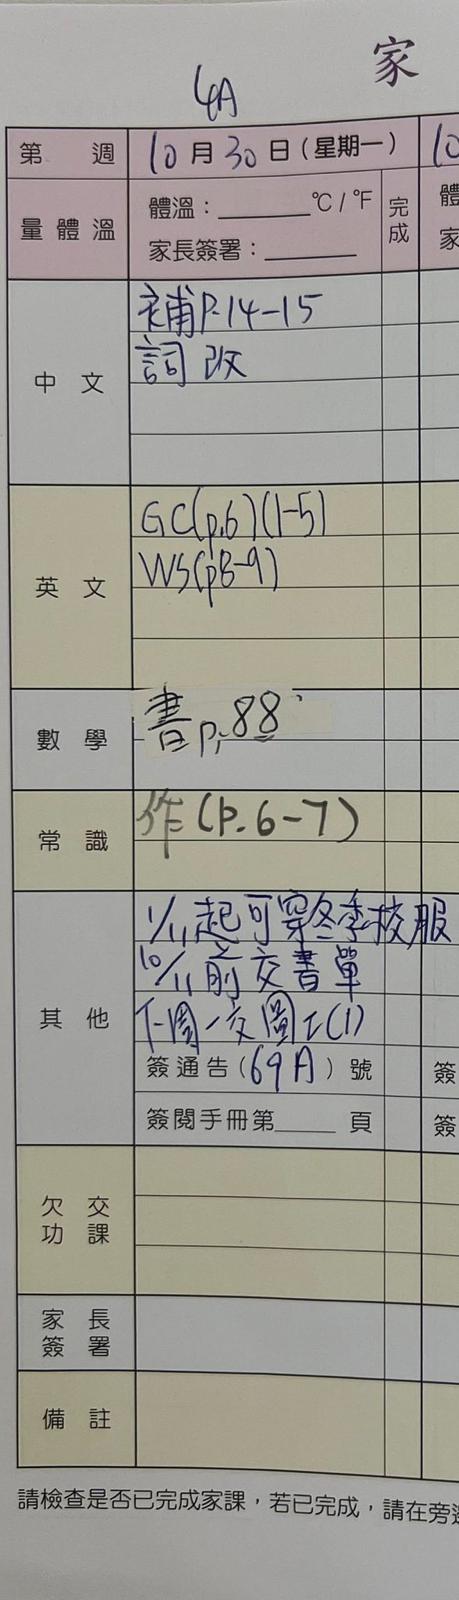 家
4A
第 週 10月30日(星期一) 10
量體溫 體溫：______℃/℉ 完成 體
家長簽署：______ 家
中文 補P.14-15
詞改
英文 GC(p.6)(1-5)
WS(p8-9)
數學 書p.88
常識 作(P.6-7)
其他 1/11起可穿冬季校服
10/11前交書單
下周一交圖工(1)
簽通告(69A)號 簽
簽閱手冊第____頁 簽
欠交功課
家長簽署
備註
請檢查是否已完成家課，若已完成，請在旁邊